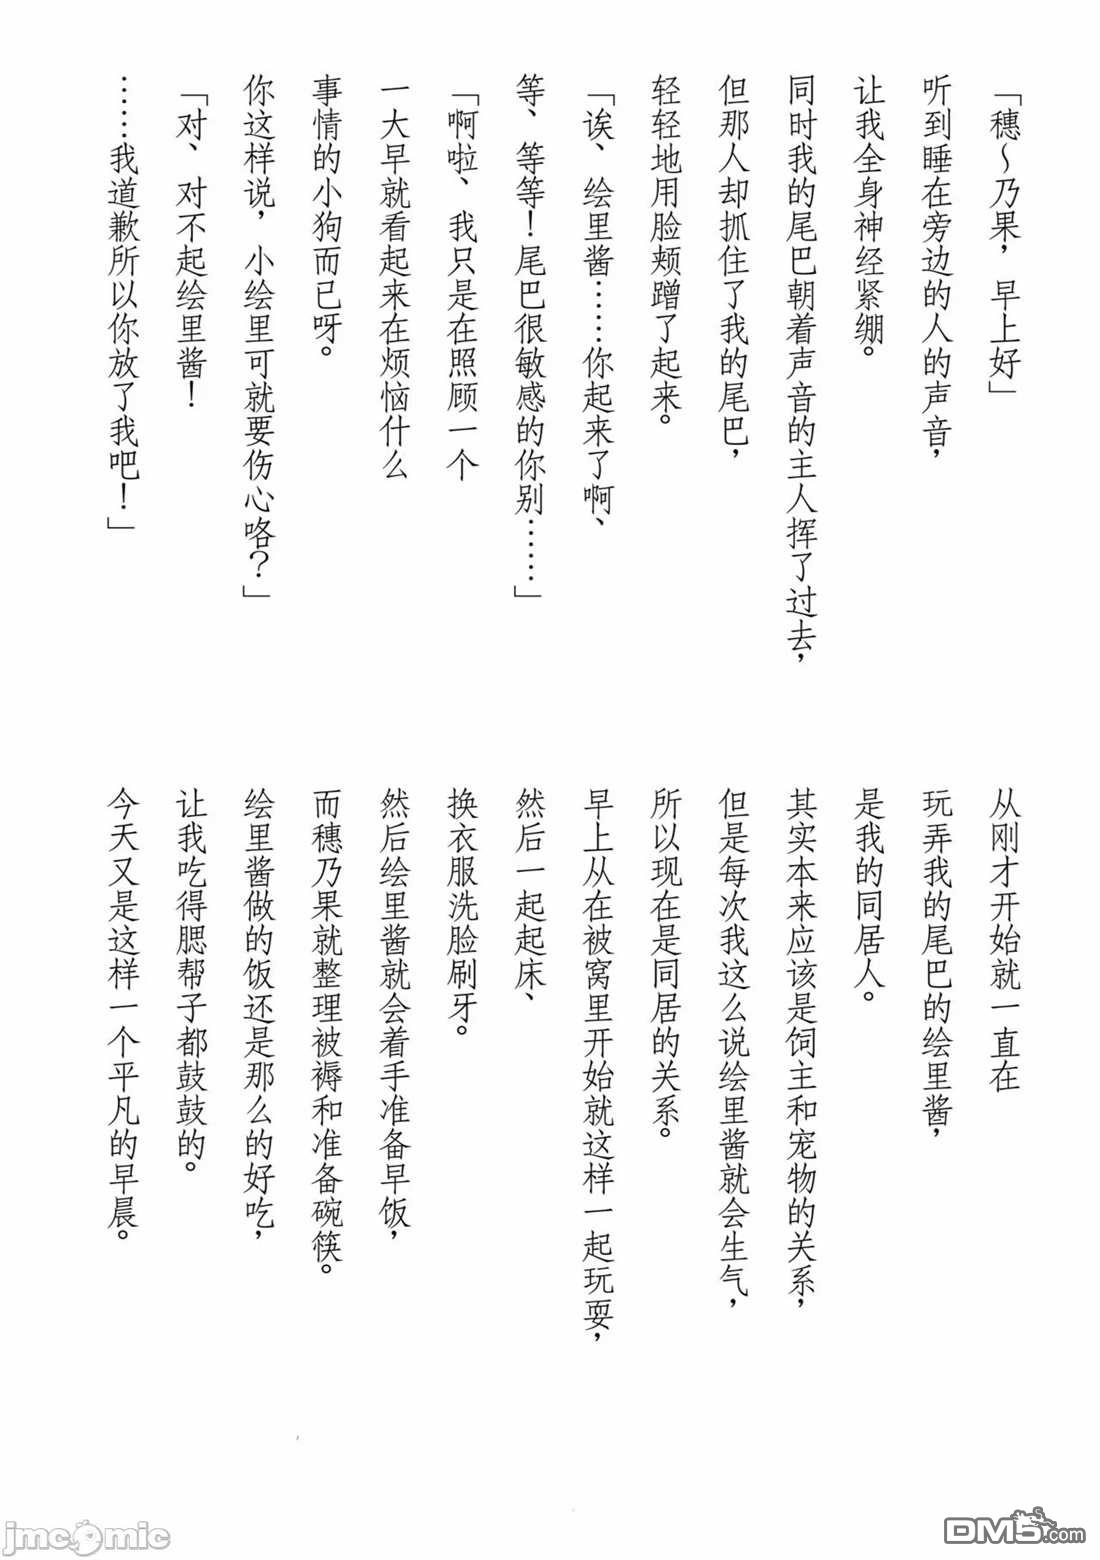 「穗～乃果，早上好」
听到睡在旁边的人的声音，
让我全身神经紧绷。
同时我的尾巴朝着声音的主人挥了过去，
但那人却抓住了我的尾巴，
轻轻地用脸颊蹭了起来。
「诶、绘里酱……你起来了啊、
等、等等！尾巴很敏感的你别……」
「啊啦、我只是在照顾一个
一大早就看起来在烦恼什么
事情的小狗而已呀。
你这样说，小绘里可就要伤心咯？」
「对、对不起绘里酱！
……我道歉所以你放了我吧！」
从刚才开始就一直在
玩弄我的尾巴的绘里酱，
是我的同居人。
其实本来应该是饲主和宠物的关系，
但是每次我这么说绘里酱就会生气，
所以现在是同居的关系。
早上从在被窝里开始就这样一起玩耍，
然后一起起床、
换衣服洗脸刷牙。
然后绘里酱就会着手准备早饭，
而穗乃果就整理被褥和准备碗筷。
绘里酱做的饭还是那么的好吃，
让我吃得腮帮子都鼓鼓的。
今天又是这样一个平凡的早晨。
jmcomic
DM5.com